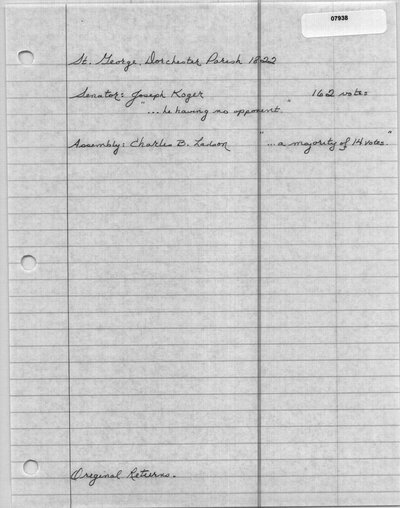 07938
St. George, Dorchester Parish 1822
Senator: Joseph Koger 162 votes
"... he having no opponent."
Assembly: Charles B. Ladson "... a majority of 14 votes."
Original Returns.